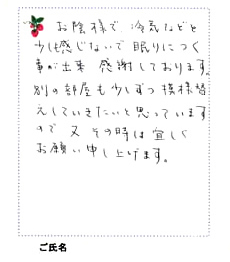 お陰様で、冷気などを
少しも感じないで眠りにつく
事が出来 感謝しております。
別の部屋も少しずつ模様替
えしていきたいと思っています
ので 又 その時は宜しく
お願い申し上げます。
ご氏名